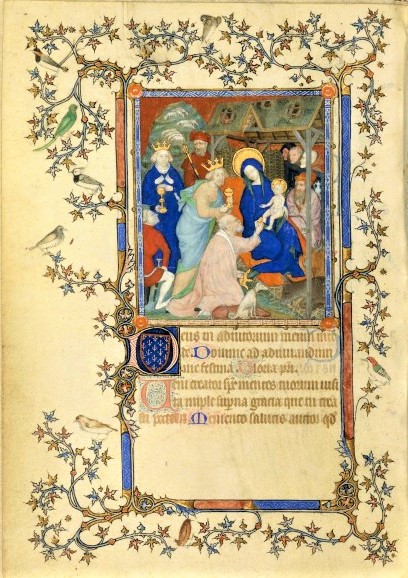 Deus in adiutorium meum inte
de. Domine ad adiuuandum
me festina. Gloria pri.
Ueni creator spe mentes tuorum uisi
ta imple superna gracia que tu crea
sti pectora. Memento salutis auctor qd